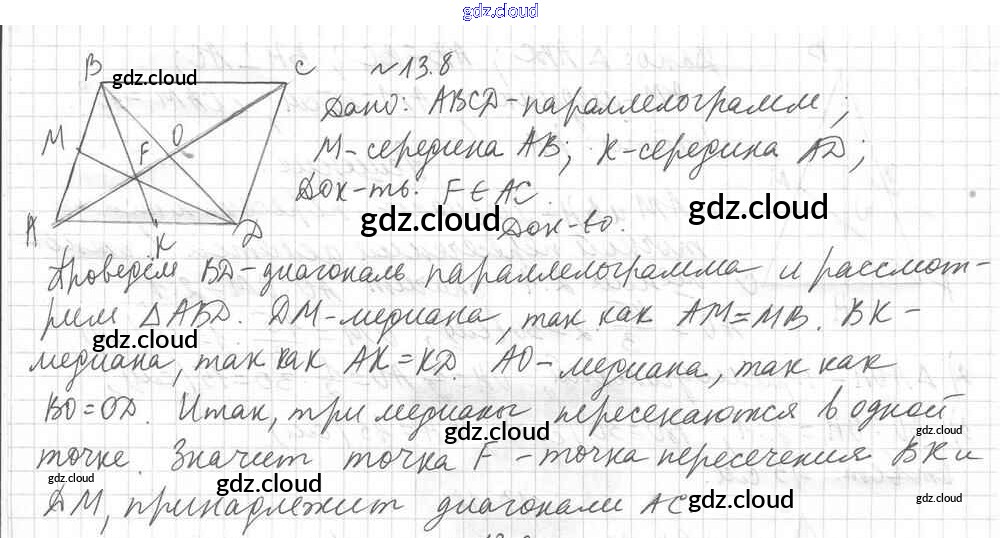 gdz.cloud
B C №13.8
gdz.cloud
Дано: ABCD-параллелограмм;
M O
F
M-середина AB; K-середина AD;
Док-ть: F∈AC.
gdz.cloud gdz.cloud
A K D Док-во.
Проведём BD-диагональ параллелограмма и рассмот-
рим ΔABD. DM-медиана, так как AM=MB. BK-
gdz.cloud
медиана, так как AK=KD. AO-медиана, так как
gdz.cloud
BO=OD. Итак, три медианы пересекаются в одной
gdz.cloud gdz.cloud
точке. Значит точка F-точка пересечения BK и
gdz.cloud
DM, принадлежит диагонали AC
gdz.cloud gdz.cloud gdz.cloud